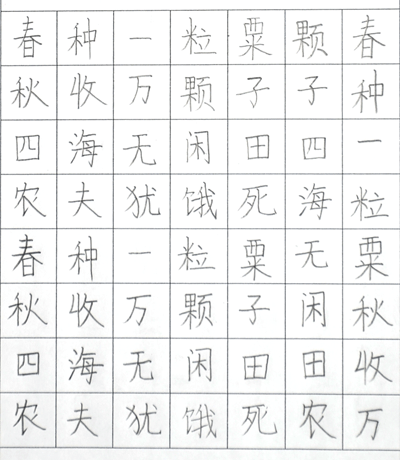 春种一粒粟颗春
秋收万颗子子种
四海无闲田四一
农夫犹饿死海粒
春种一粒粟无粟
秋收万颗子闲秋
四海无闲田田收
农夫犹饿死农万